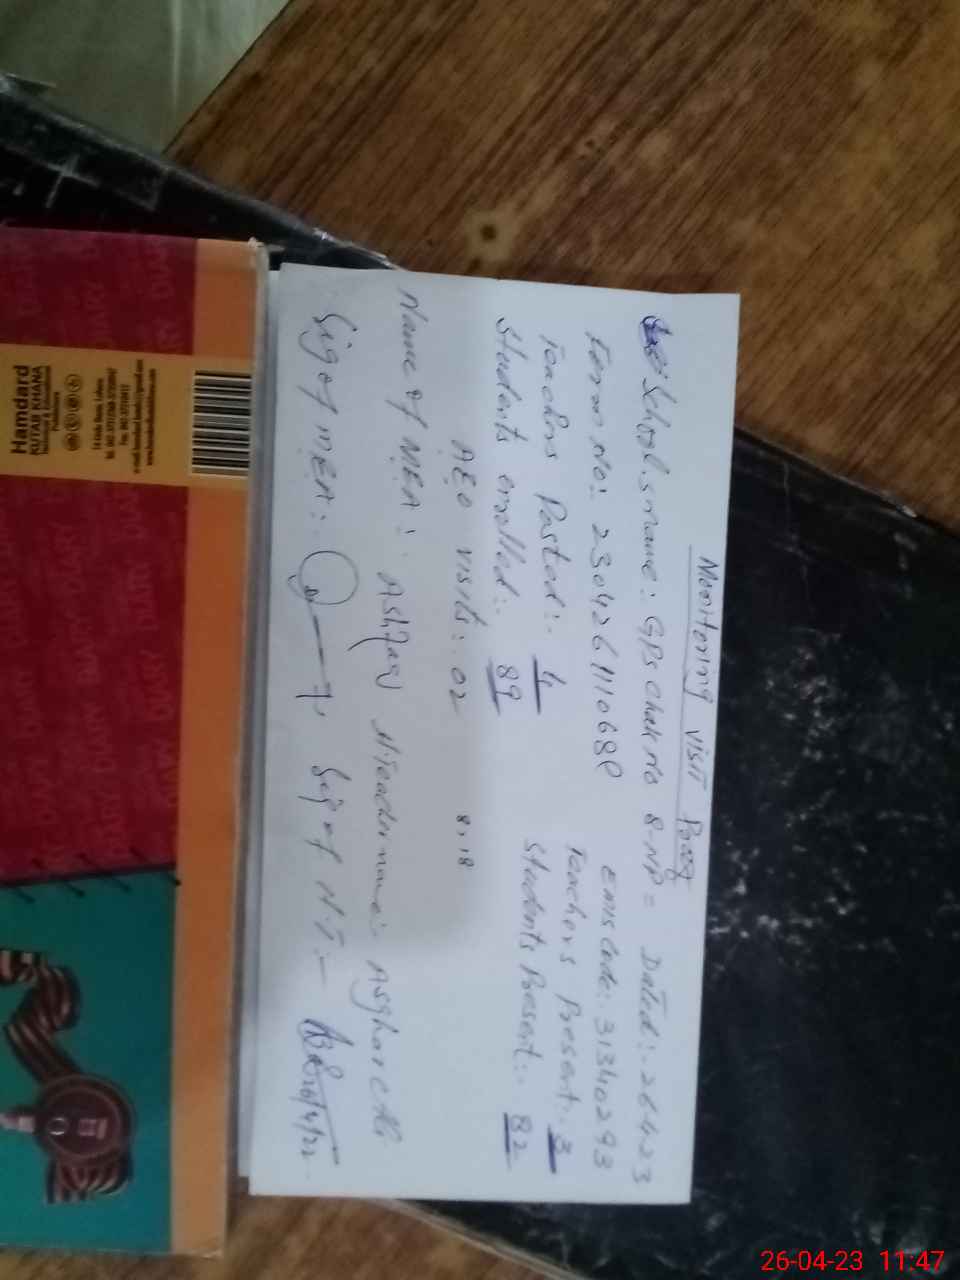 Monitoring visit Proof
School,s name: GPS Chak No 8-NP = Dated:- 26-4-23
Form No: 230426111068 Emis Code: 31340293
Teachers Posted:- 4 Teachers Present:- 3
Students enrolled:- 89 Students Present:- 82
AEO visits: 02 8,18
Name of MEA: Ashfaq H.Teacher name: Asghar Ali
Sig of MEA: Sig of H.T:-
26/4/23
Hamdard
KUTAB KHANA
DIARY DIARY DIARY
26-04-23 11:47